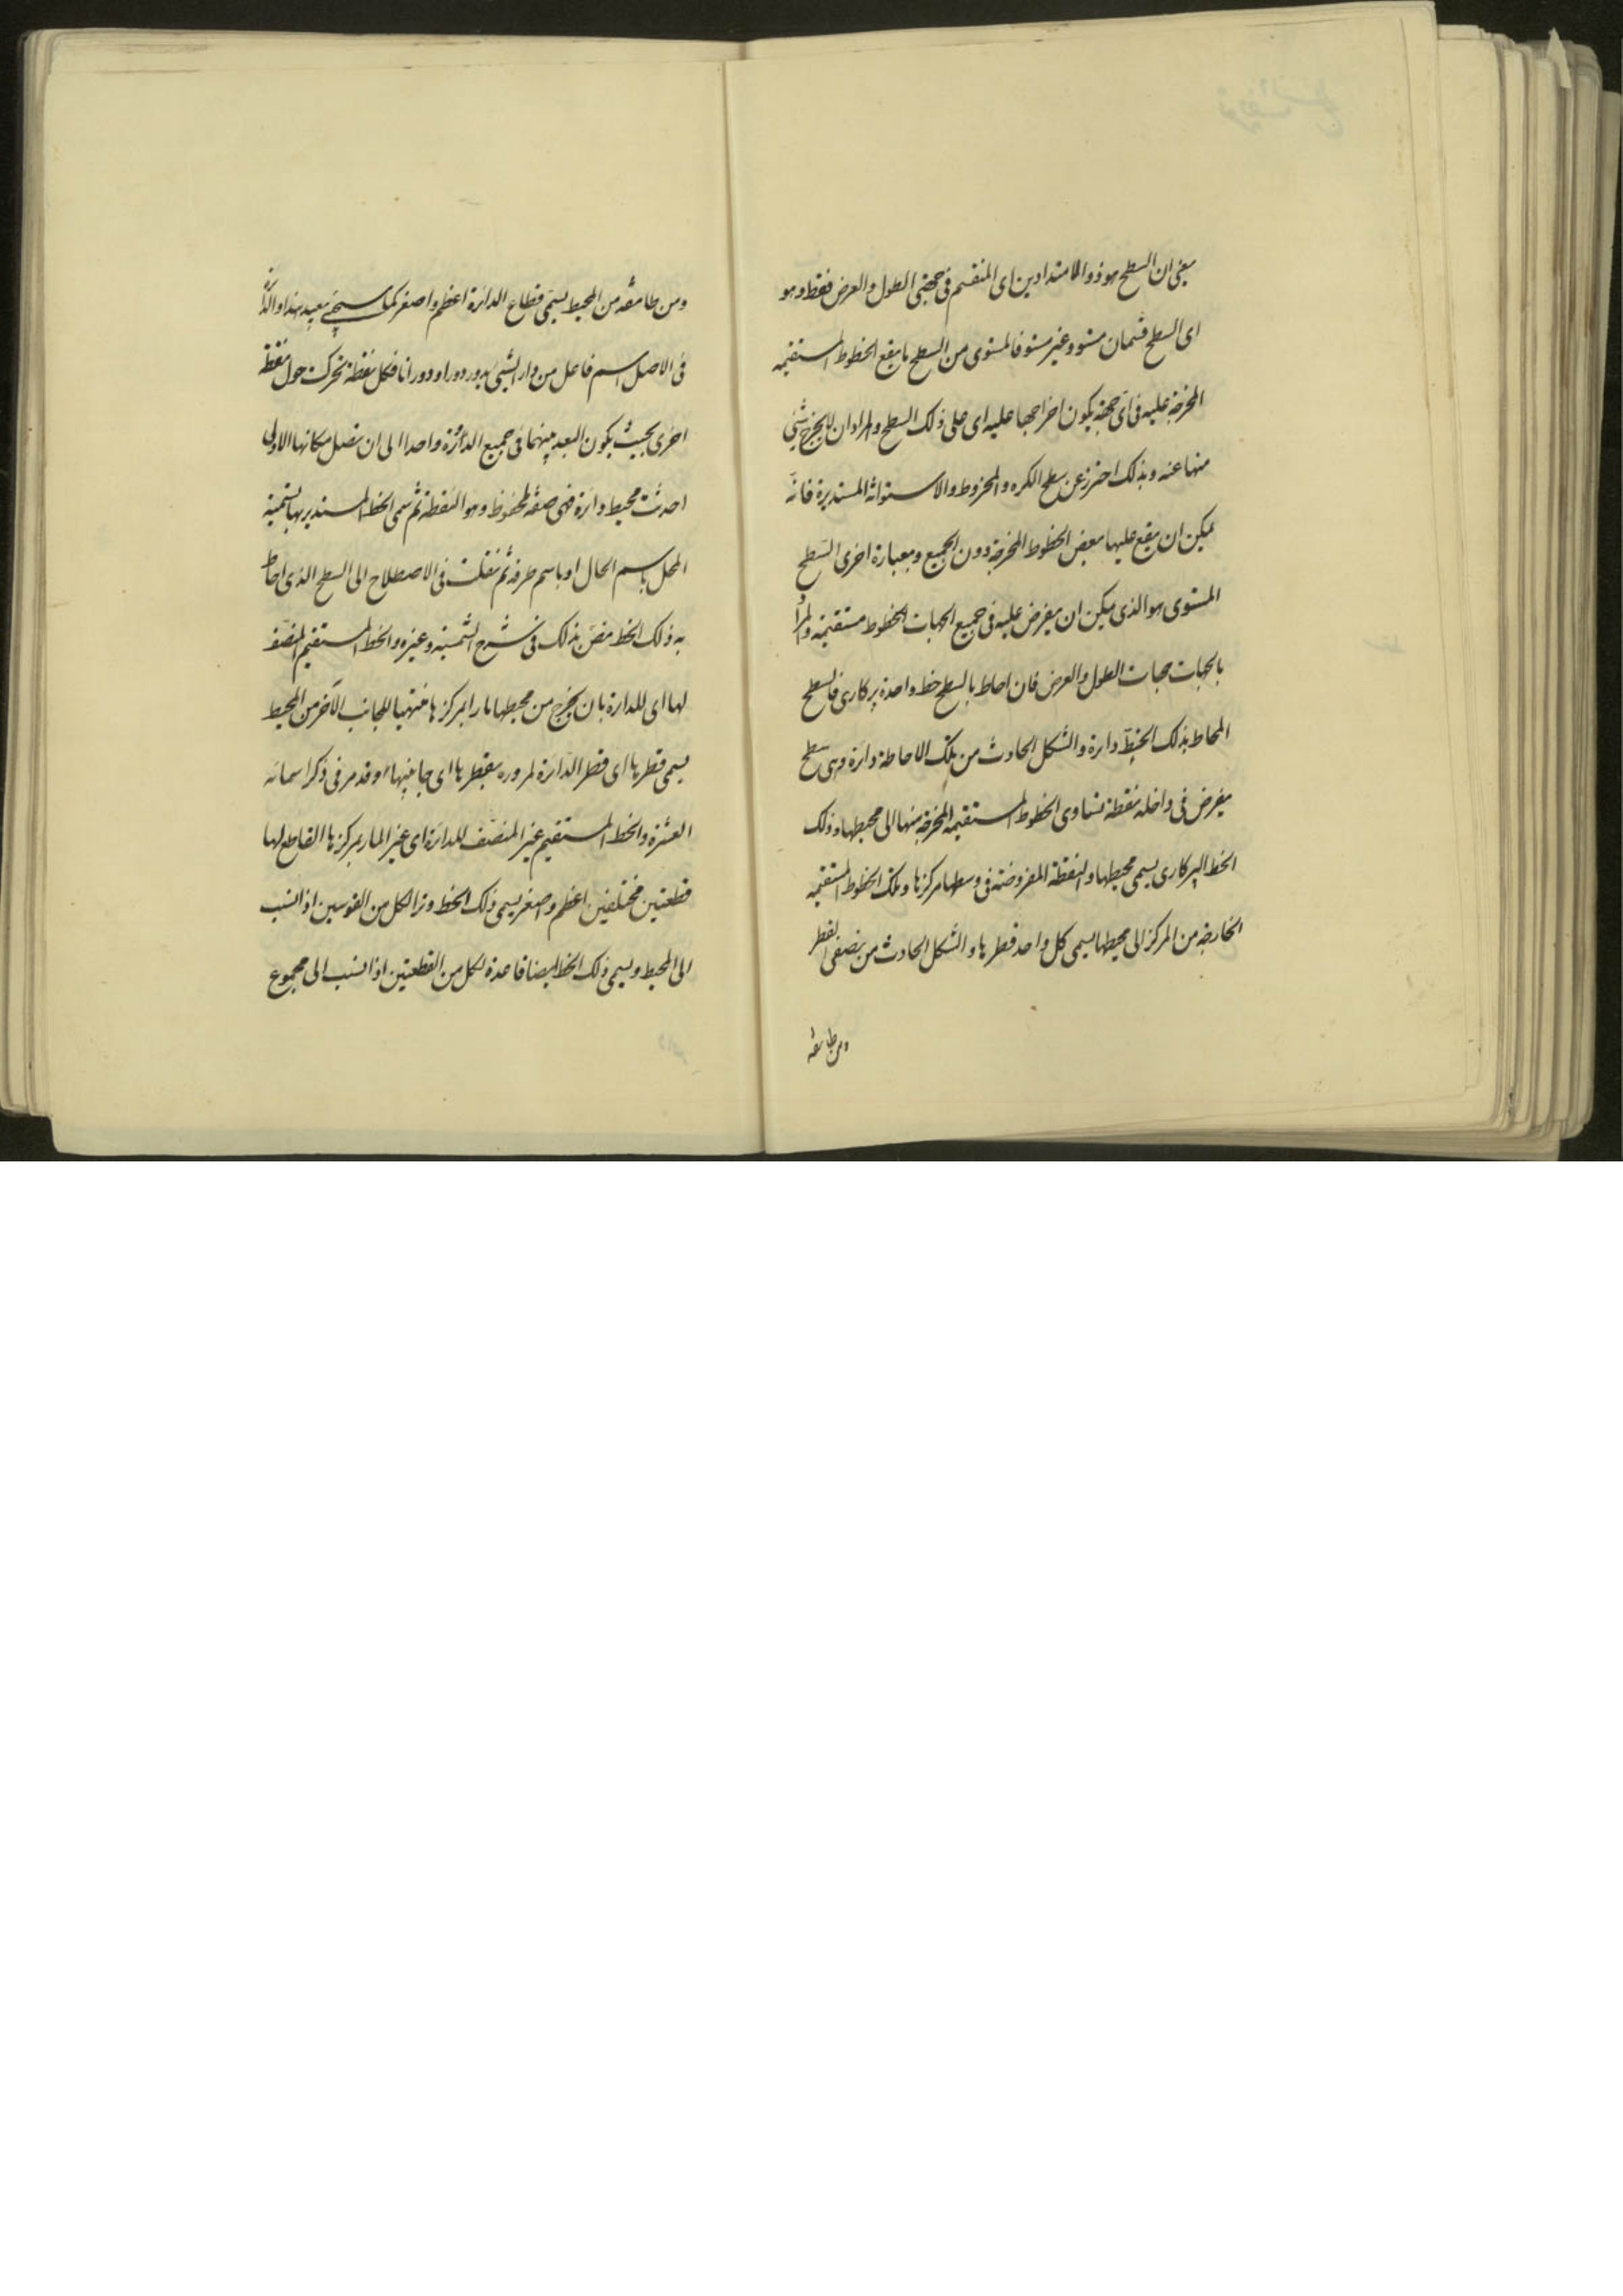 يعني ان السطح هو ذو الامتدادين اى المنقسم فى جهتى الطول والعرض فقط وهو
اى السطح قسمان مستو وغير مستو فالمستوى من السطح ما يقع الخطوط المستقيمه
المخرجة عليه فى اى جهة يكون اخراجها عليه اى على ذلك السطح والمراد ان لا يخرج شئ
منها عنه وبذلك احترز عن سطح الكره والمخروط والاسطوانة المستديرة فانه
يمكن ان يقع عليها بعض الخطوط المخرجة دون الجميع وبعبارة اخرى السطح
المستوى هو الذى يمكن ان يفرض عليه فى جميع الجهات الخطوط مستقيمة والمراد
بالجهات جهات الطول والعرض فان احاط بالسطح خط واحدة پركارى فالسطح
المحاط بذلك الخط دارة والشكل الحادث من تلك الاحاطة دائرة وهى سطح
يفرض فى داخله نقطة تساوى الخطوط المستقيمه المخرجة منها الى محيطها وذلك
الخط الپركارى يسمى محيطها والنقطة المفروضة فى وسطها مركزها وتلك الخطوط المستقيمه
الخارجه من المركز الى محيطها يسمى كل واحد قطرها والشكل الحادث من نصفى القطر
ومن طائفة
ومن طائفة من المحيط يسمى قطاع الدائرة اعظم واصغر كما سيجئ بعيد هذا والدائرة
فى الاصل اسم فاعل من دار الشئ يدور دورا ودورانا فكل نقطة تحركت حول نقطة
اخرى بحيث يكون البعد بينهما فى جميع الدائرة واحدا الى ان تصل مكانها الاولى
احدثت محيط دائرة فهى صفة وهو النقطة ثم سمى الخط المستدير بها تسمية
المحل باسم الحال او باسم طرفه ثم نقلت فى الاصطلاح الى السطح الذى احاط
به ذلك الخط نص بذلك فى شرح الشمسيه وغيره والخط المستقيم المنصف
لها اى للدائرة بان يخرج من محيطها مارا بمركزها منتهيا للجانب الآخر من المحيط
يسمى قطرها اى قطر الدائرة لمروره بقطرها اى جانبيها وقد مر فى ذكر اسمائه
العشرة والخط المستقيم غير المنصف للدائرة اى غير المار بمركزها القاطع لها
قطعتين مختلفين اعظم واصغر يسمى ذلك الخط وترا لكل من القوسين اذا نسب
الى المحيط ويسمى ذلك الخط ايضا قاعدة لكل من القطعتين اذا نسب الى مجموع